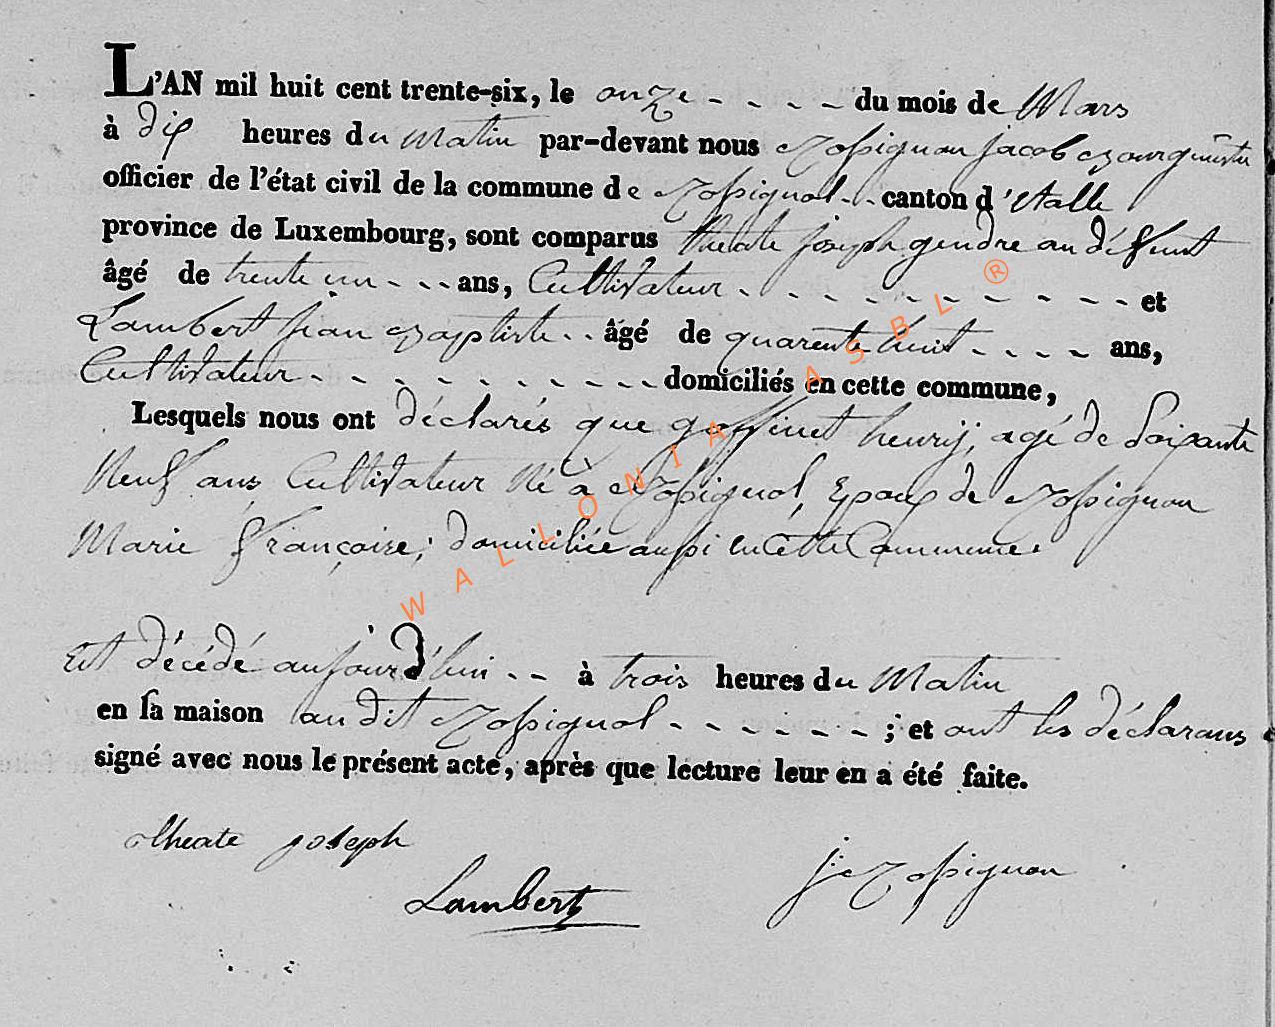 L'AN mil huit cent trente-six, le onze - - - - du mois de Mars
à dix heures du matin par-devant nous Rossignon jacob Bourguimestre
officier de l'état civil de la commune de Rossignol - - canton d'Etalle
province de Luxembourg, sont comparus theate joseph gendre au défunt
âgé de trente un - - - ans, Cultivateur - - - - - - - - - - et
Lambert jean Baptiste - - âgé de quarente huit - - - - ans,
Cultivateur - - - - - - - - - - domiciliés en cette commune,
Lesquels nous ont déclarés que goffinet henrij, agé de Soixante
Neuf ans Cultivateur Né à Rossignol, Epoux de Rossignon
Marie françoise; domiciliée aussi en Cette Commune.
Est décédé aujourd'hui - - à trois heures du Matin
en sa maison au dit Rossignol - - - - - - ; et ont les déclarans
signé avec nous le présent acte, après que lecture leur en a été faite.
theate joseph
Lambert
j: Rossignon
WALLONIA ASBL ®